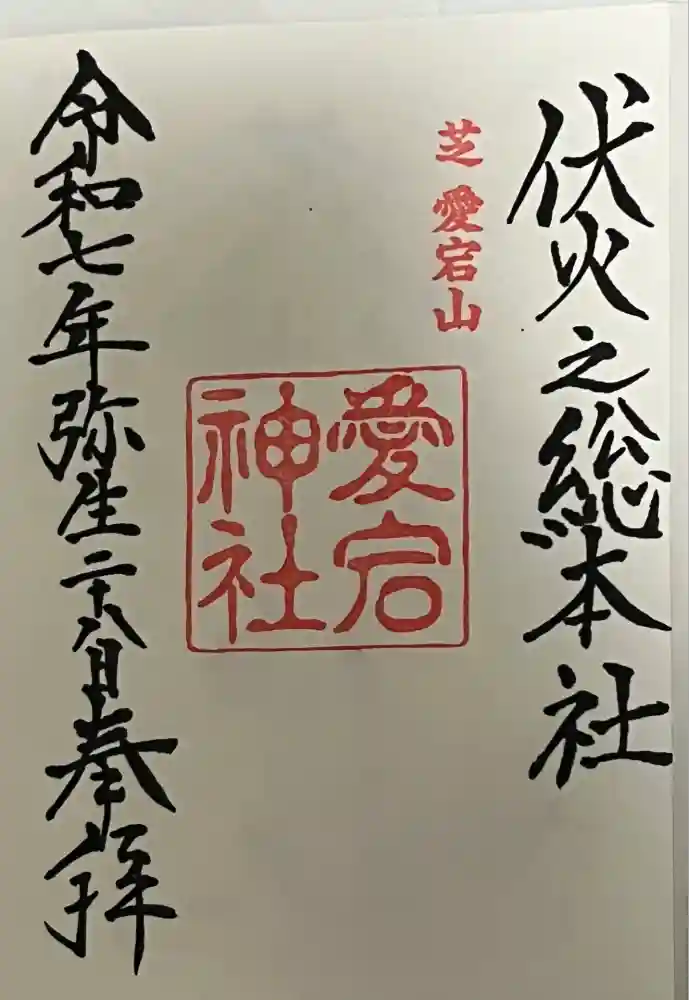 伏火之総本社
芝 愛宕山
愛宕
神社
令和七年弥生二十八日奉拝